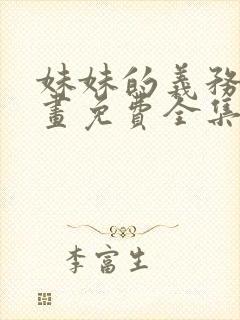 妹妹的義務
畫免費全集
李富生